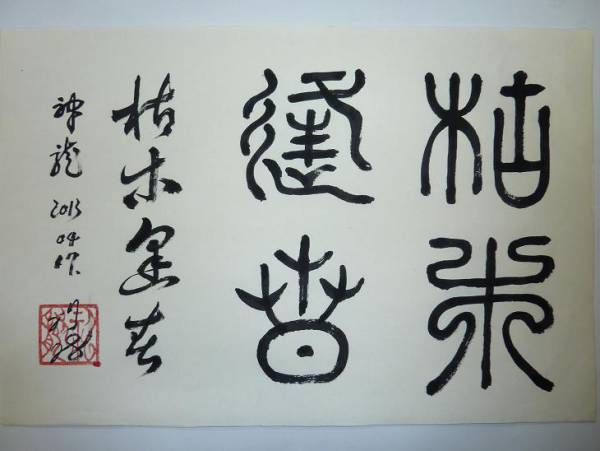 枯木
逢春
枯木逢春
神龙 2013 04 作